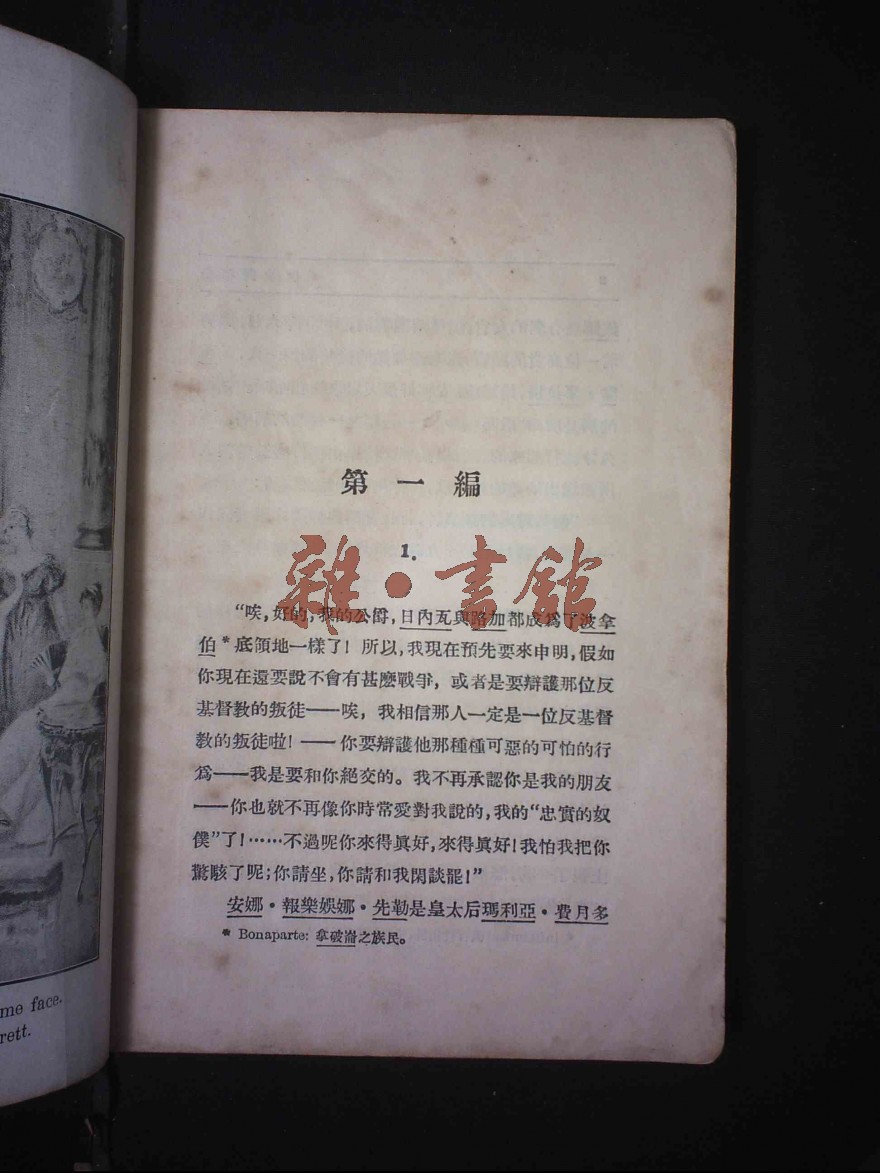 第一編
1.
“唉，好的，我的公爵，日內瓦與路加都成爲了波拿
伯*底領地一樣了！所以，我現在預先要來申明，假如
你現在還要說不會有甚麽戰爭，或者是要辯護那位反
基督教的叛徒——唉，我相信那人一定是一位反基督
教的叛徒啦！——你要辯護他那種種可惡的可怕的行
爲——我是要和你絕交的。我不再承認你是我的朋友
——你也就不再像你時常愛對我說的，我的“忠實的奴
僕”了！……不過呢你來得眞好，來得眞好！我怕我把你
驚駭了呢；你請坐，你請和我閑談罷！”
安娜・報樂娛娜・先勒是皇太后瑪利亞・費月多
* Bonaparte: 拿破崙之族民。
雜・書館
me face.
rett.